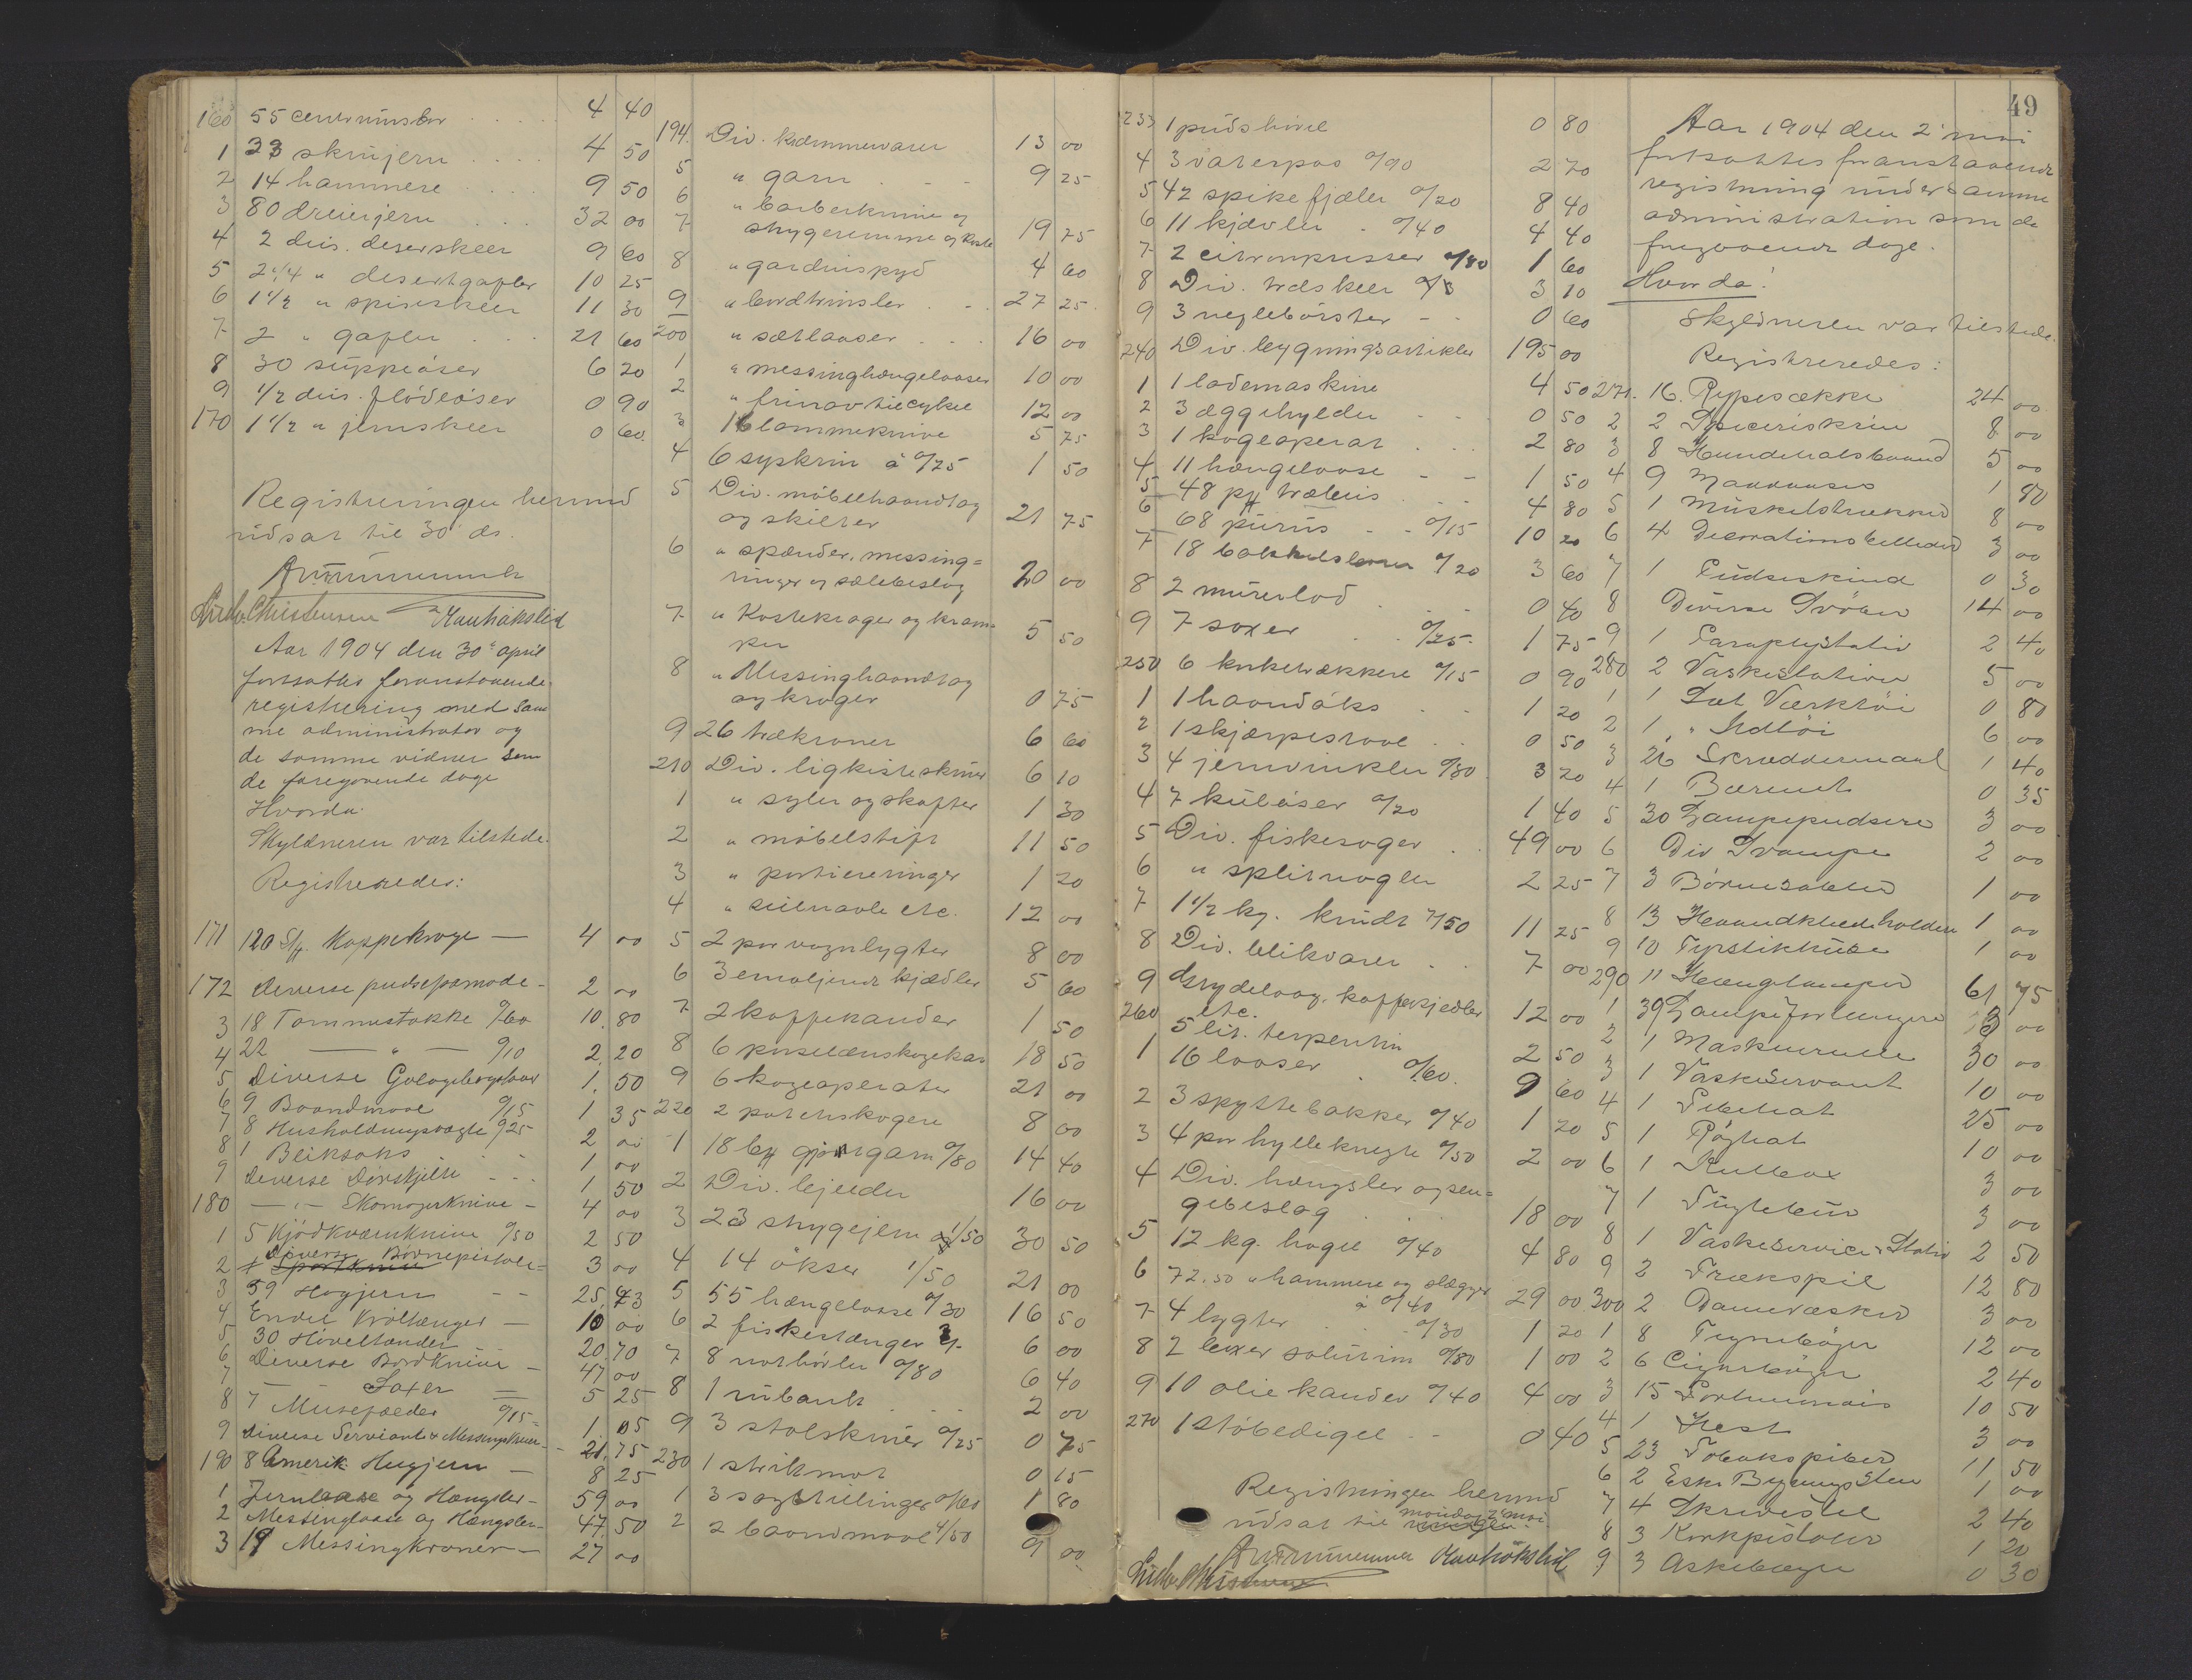 160 55 4 40
1 33 skrujern 4 50
2 14 hammere 9 50
3 80 dreierjern 32 00
4 2 dus. deserskeer 9 60
5 2 1/4 " desertgafler 10 25
6 1 1/2 " spiseskeer 11 30
7 2 " gafler 21 60
8 30 suppeøser 6 20
9 1/2 dus. flødeøser 0 90
170 1 1/2 " jernskeer 0 60
Registreringen hermed
udsat til 30 ds.
Aar 1904 den 30 april
fortsattes foranstaaende
registrering med sam
me administrator og
de samme vidner som
de foregaaende dage
Hvorda:
Skyldneren var tilstede.
Registreredes:
171 120 Stk. Kappekroge 4 00
172 diverse pudsepomade 2 00
3 18 Tommestokke 0/60 10 80
4 22 — " — 0/10 2 20
5 Diverse 1 50
6 9 Baandmaal 0/15 1 35
7 8 Husholdningsvægte 0/25 2 00
8 1 Bliksaks 1 00
9 diverse Dørskilte 1 50
180 — " — Skomagerknive 4 00
1 5 Kjødkværnknive 0/50 2 50
2 Diverse Børnepistoler 3 00
3 59 Høvjern 25 73
4 Endel 10 00
5 30 Høveltænder 20 70
6 Diverse Bordknive 47 00
7 — Saxer 5 25
8 7 Musefælder 0/15 1 05
9 diverse 21 75
190 8 Amerik. Hugjern 8 25
1 Jernlaase og Hængsler 59 00
2 Messinglaase og Hængsler 47 50
3 19 Messingkraner 27 00
194 Div. kræmmervarer 13 00
5 " garn 9 25
6 " barberknive og
7 strygeremme og koste 19 75
8 " gardinspyd 4 60
9 " bordtrinsler 27 25
200 " sætlaaser 16 00
1 " messinghængelaaser 10 00
2 " frinav til cykel 12 00
3 16 lommeknive 5 75
4 6 syskrin à 0/25 1 50
5 Div. møbelhaandtag
og skilter 21 75
6 " spænder, messing=
ringer og selebeslag 20 00
7 " Kostekroger og kram=
per 5 50
8 " Messinghaandtag
og kroger 0 75
9 26 trækraner 6 60
210 Div. ligkisteskruer 6 10
1 " syler og skafter 1 30
2 " møbelstift 11 50
3 " portiereringer 1 20
4 " seilnaale etc. 12 00
5 2 par vognlygter 8 00
6 3 emaljerede kjædler 5 60
7 2 kaffekander 1 50
8 6 porselænskogekar 18 50
9 6 kogeaperater 21 00
220 2 potetkogere 8 00
1 18 bk gjørngarn 0/80 14 40
2 Div. bjelder 16 00
3 23 strygejern 1/50 30 50
4 14 økser 1/50 21 00
5 55 hængelaase 0/30 16 50
6 2 fiskestænger 3/- 6 00
7 8 nothøvler 0/80 6 40
8 1 rubank 2 00
9 3 stolskruer 0/25 0 75
230 1 strikmot 0 15
1 3 0/60 1 80
2 2 baandmaal 4/50 9 00
49
233 1 pudshivel 0 80
4 3 vaterpas 0/90 2 70
5 42 spikefjæler 0/20 8 40
6 11 kjævler 0/40 4 40
7 2 citronpresser 0/80 1 60
8 Div. træskeer 3 10
9 3 neglebørster 0 60
240 Div. bygningsartikler 195 00
1 1 lademaskine 4 50
2 3 æggehylder 0 50
3 1 kogeaperat 2 80
4 11 hængelaase 1 50
5 48 pk træleiis 4 80
6 68 purris 0/15 10 20
7 18 0/20 3 60
8 2 murerlod 0 40
9 7 saxer 0/25 1 75
250 6 korketrækkere 0/15 0 90
1 1 haandøks 1 20
2 1 skjærpestaal 0 50
3 4 jernvinkler 0/80 3 20
4 7 kuløser 0/20 1 40
5 Div. fiskesager 49 00
6 " splitnagler 2 25
7 1 1/2 kg. krudt 7/50 11 25
8 Div. blikvarer 7 00
9 Grydelaag, kaffekjedler
etc. 12 00
260 5 lit. terpentin 2 50
1 16 laaser 0/60 9 60
2 3 spyttebakker 0/40 1 20
3 4 par hylleknegte 0/50 2 00
4 Div. hængsler og sen=
gebeslag 18 00
5 12 kg. hagel 0/40 4 80
6 72.50 " hammere og slægger
à 0/40 29 00
7 4 lygter 0/30 1 20
8 2 bøxer solurin 0/80 1 00
9 10 oliekander 0/40 4 00
270 1 støbedigel 0 40
Registreringen hermed
udsat til mandag 2 mai
Aar 1904 den 2 mai
fortsattes foranstaaende
registrering under samme
administration som de
foregaaende dage.
Hvorda:
Skyldneren var tilstede.
Registreredes:
271. 16 Rypesække 24 00
2 2 Speceriskrin 8 00
3 8 Hundehalsbaand 5 00
4 9 1 80
5 1 Muskelstrækker 8 00
6 4 Decorationsbilleder 3 00
7 1 Pudseskind 0 30
8 Diverse Svøber 14 00
9 1 Paraplystativ 2 40
280 2 Vaskestativer 5 00
1 1 Sæt Værktøi 0 80
2 1 " Ildtøi 6 00
3 26 Skræddermaal 1 40
4 1 Bærenet 0 35
5 30 Lampepudsere 3 00
6 Div Svampe 2 00
7 3 Børnesabler 1 00
8 13 Haandklædeholdere 1 00
9 10 Fyrstikhuse 1 00
290 11 Hænglamper 61 75
1 39 Lampeforlængere 00
2 1 Maskinrulle 30 00
3 1 Vaskeservant 10 00
4 1 25 00
5 1 10 00
6 1 Kulbox 3 00
7 1 Fuglebur 3 00
8 1 Vaskeservice & Stativ 2 50
9 2 Trækspil 12 80
300 2 Damevæsker 3 00
1 8 Tegnebøger 12 00
2 6 Cigarbøger 2 40
3 15 Portemonais 10 50
4 1 Hest 3 00
5 23 Tobakspiber 11 50
6 2 Eske BygningsSten 1 00
7 4 Skrivestel 2 40
8 3 Korkpistoler 1 20
9 3 Askebæger 0 30